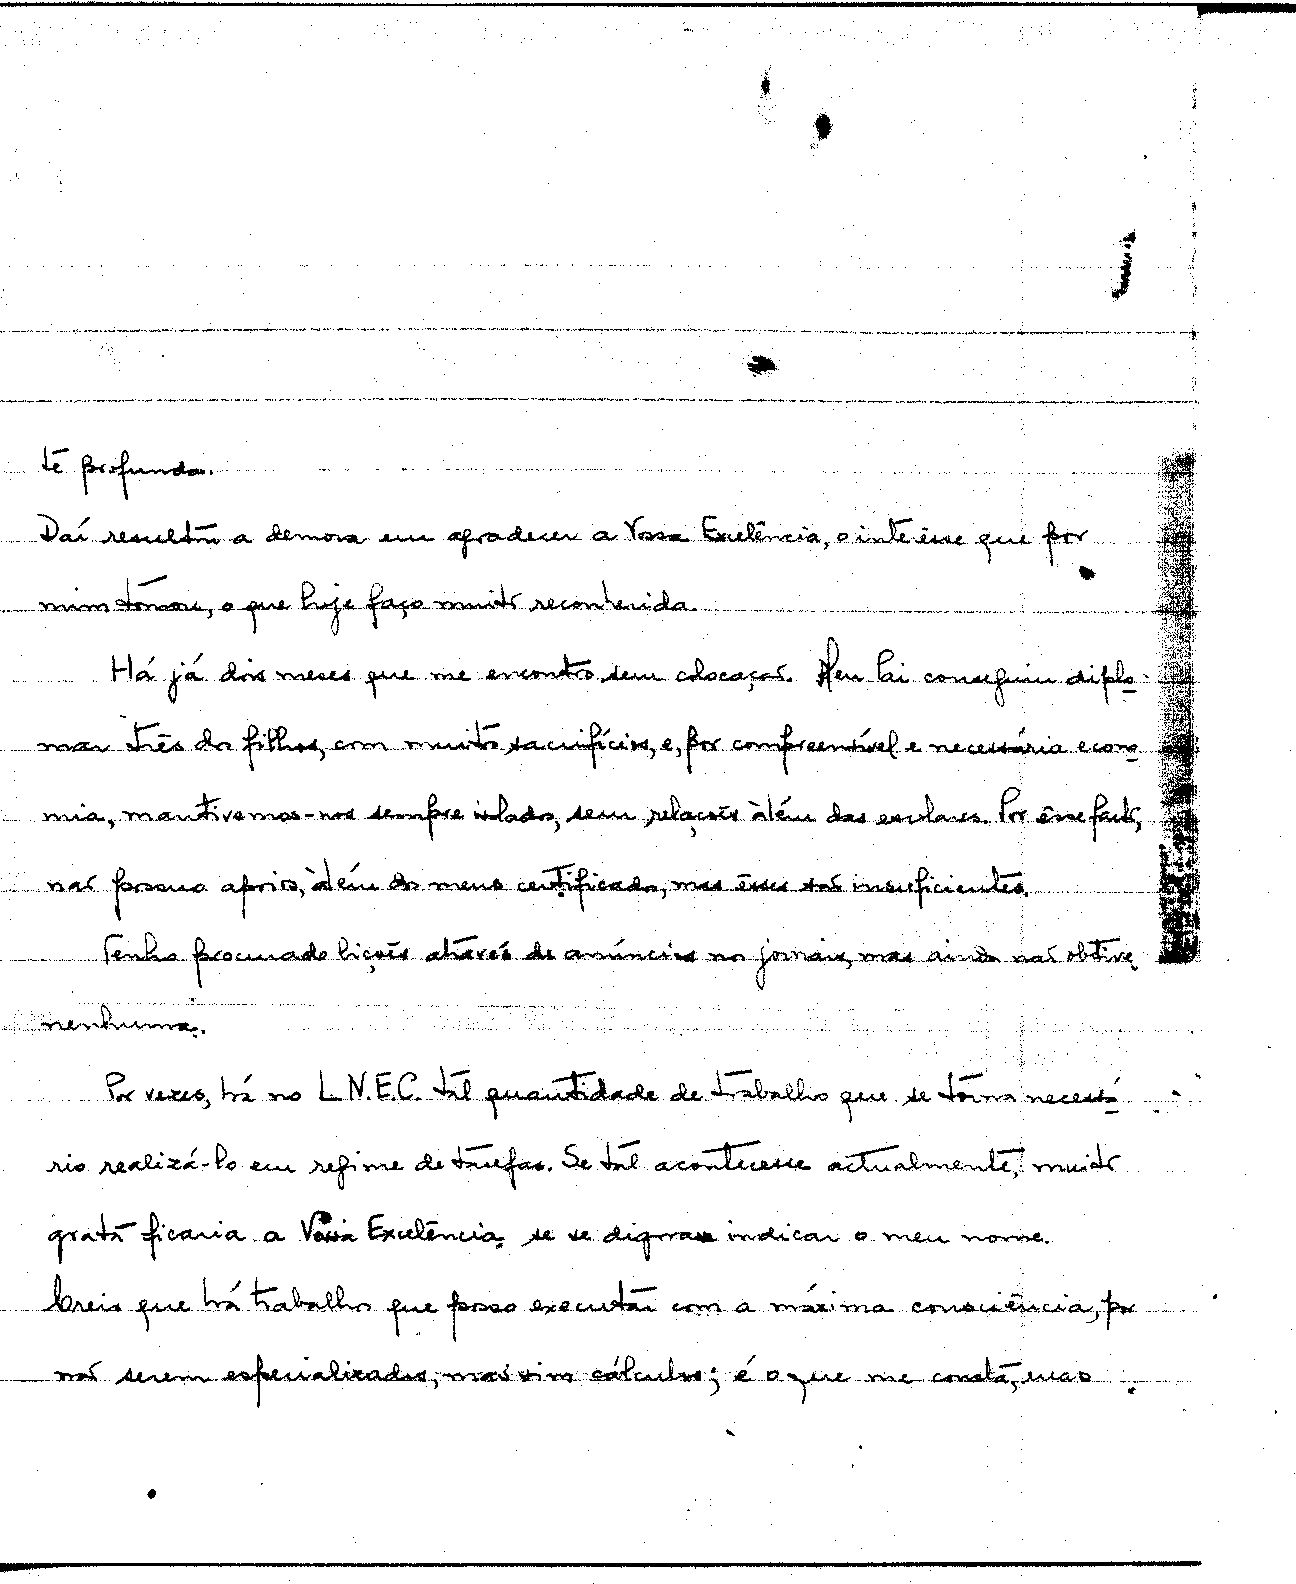 te profunda.
Daí resultou a demora em agradecer a Vossa Excelência, o interêsse que por
mim tomou, o que hoje faço muito reconhecida.
Há já dois meses que me encontro sem colocação. Meu Pai conseguiu diplo-
mar três dos filhos, com muitos sacrifícios, e, por compreensível e necessária econo-
mia, mantivemos-nos sempre isolados, sem relações àlém das escolares. Por êsse facto,
não possuo apoios, àlém dos meus certificados, mas êsses são insuficientes.
Tenho procurado lições através de anúncios nos jornais, mas ainda não obtive
nenhuma.
Por vezes, há no L.N.E.C. tal quantidade de trabalho que se torna necessá-
rio realizá-lo em regime de tarefas. Se tal acontecesse actualmente, muito
grata ficaria a Vossa Excelência se se dignasse indicar o meu nome.
Creio que há trabalhos que posso executar com a máxima consciência, por
não serem especializados, mas sim cálculos; é o que me consta, mas